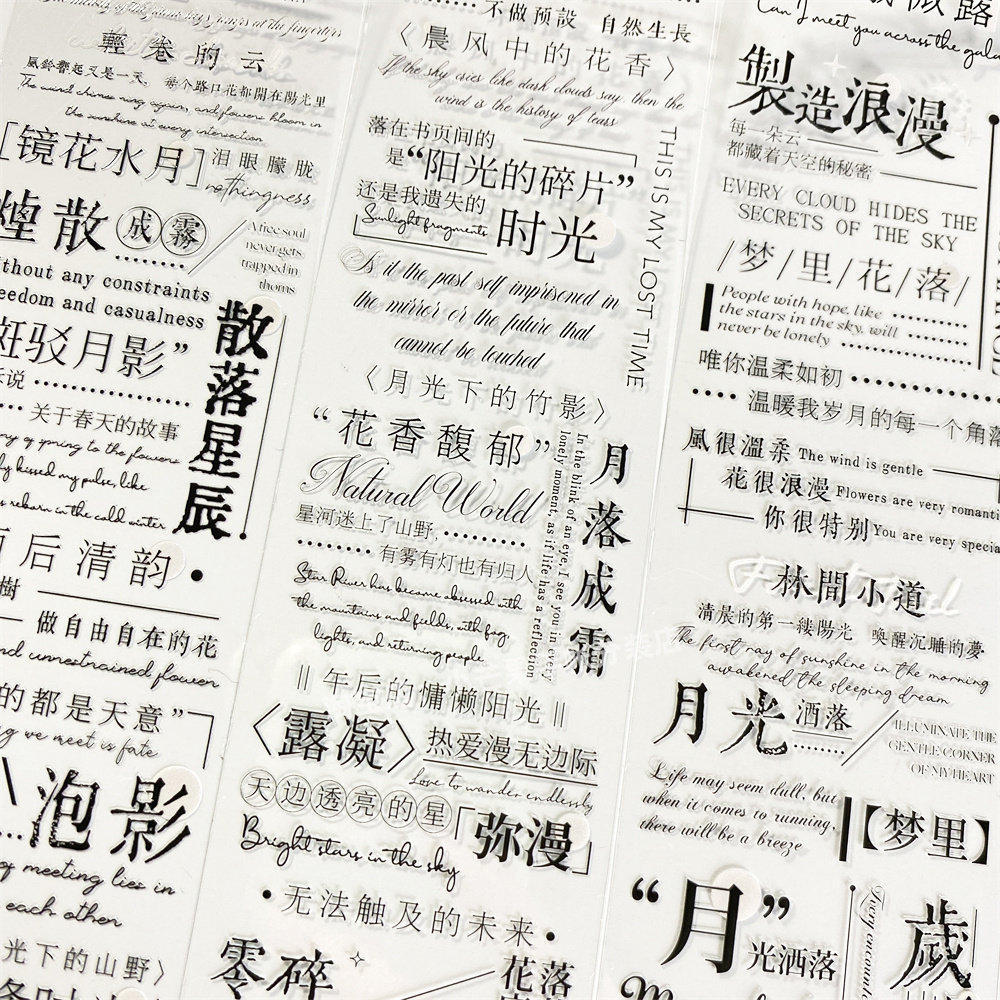 輕卷的云
風鈴響起又是一天，每个路口花都開在陽光里
The wind chimes ring again, and flowers bloom in
the sunshine at every intersection
[镜花水月]泪眼朦胧
nothingness
散成霧
A free soul
never gets
trapped in
thorns
without any constraints
freedom and casualness
斑驳月影”
散落星辰
关于春天的故事
kissed my pulse, like
reborn in the cold winter
后清韵•
樹
做自由自在的花
and unrestrained flower
的都是天意”
we meet is fate
泡影
of meeting lies in
each other
光下的山野〉
不做预設 自然生長
〈晨风中的花香〉
If the sky cries like dark clouds say, then the
wind is the history of tears
落在书页间的
是“阳光的碎片”
还是我遗失的
Sunlight fragments
时光
THIS IS MY LOST TIME
Is it the past self imprisoned in
the mirror or the future that
cannot be touched
〈月光下的竹影〉
“花香馥郁”
Natural World
星河迷上了山野，
有雾有灯也有归人
Star River has become obsessed with
the mountains and fields, with fog,
lights, and returning people
In the blink of an eye, I see you in every
lonely moment, as if life has a reflection
月落成霜
‖午后的慵懒阳光‖
〈露凝〉热爱漫无边际
Love to wander endlessly
天边透亮的星
「弥漫」
Bright stars in the sky
•无法触及的未来•
零碎
花落
Can I meet you across the gala
製造浪漫
每一朵云
都藏着天空的秘密
EVERY CLOUD HIDES THE
SECRETS OF THE SKY
/梦/里/花/落/
People with hope, like
the stars in the sky, will
never be lonely
唯你温柔如初
温暖我岁月的每一个角落
風很溫柔 The wind is gentle
花很浪漫 Flowers are very romanti
你很特别 You are very specia
林間小道
清晨的第一縷陽光 喚醒沉睡的夢
The first ray of sunshine in the morning
awakened the sleeping dream
月光洒落
ILLUMINATE THE
GENTLE CORNER
OF MY HEART
Life may seem dull, but
when it comes to running,
there will be a breeze
【梦里】
“月”
光洒落
歲